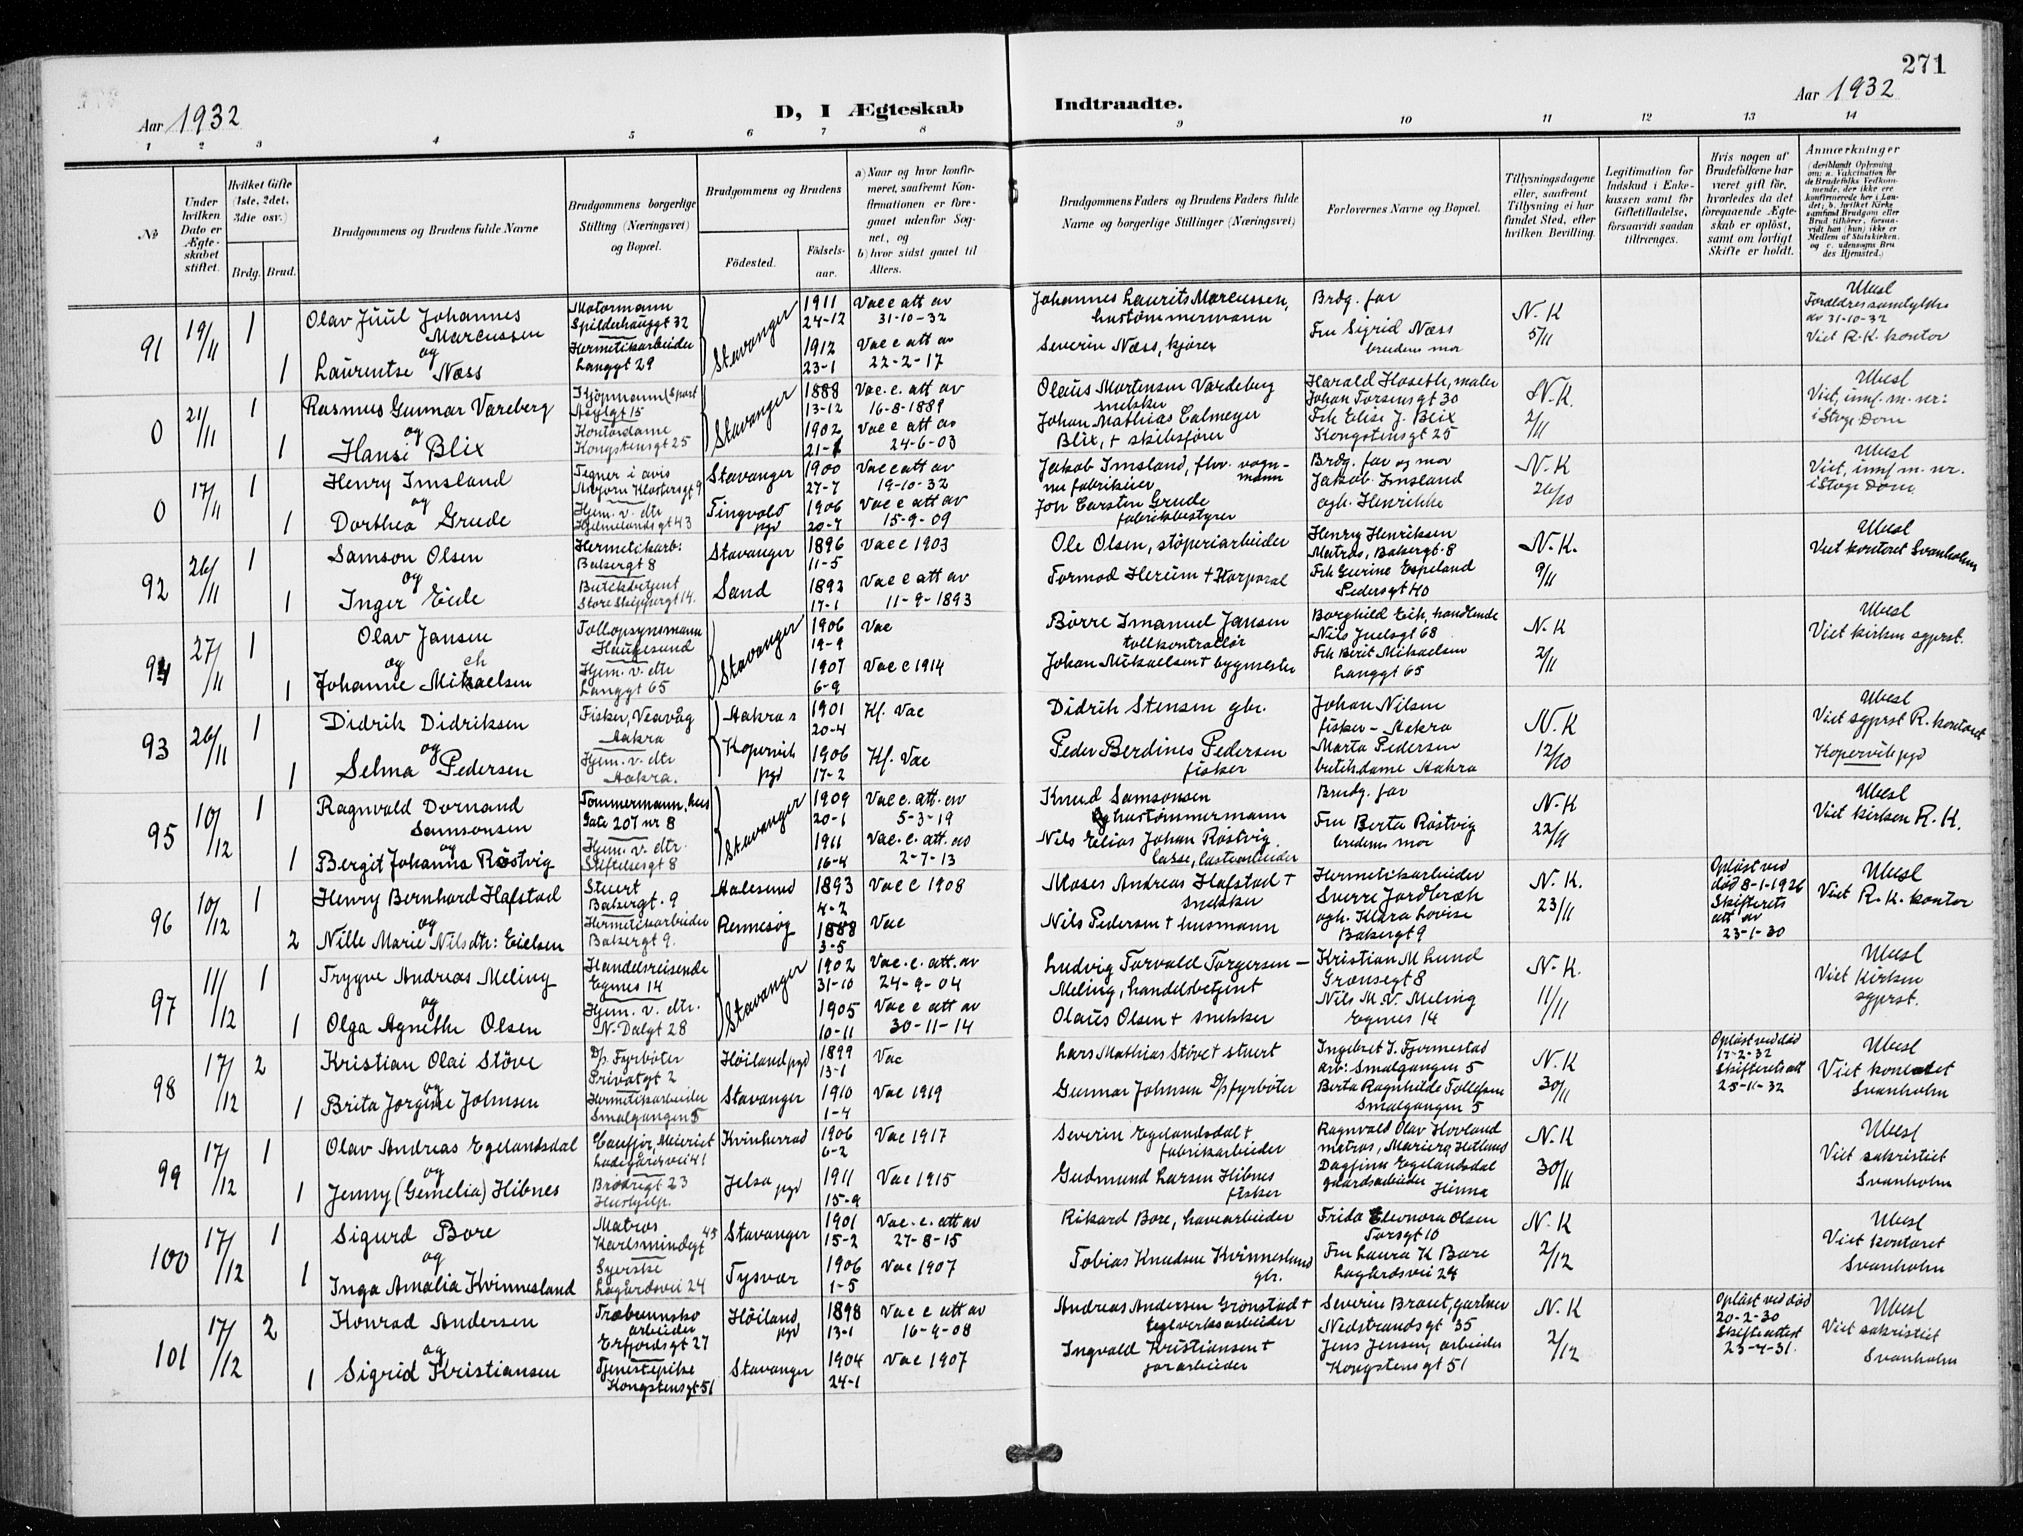 271
Aar 1932
D, I Ægteskab Indtraadte.
Aar 1932
1 2 3 4 5 6 7 8 9 10 11 12 13 14
No
Under hvilken Dato er Ægteskabet stiftet.
Hvilket Gifte (1ste, 2det, 3die osv.)
Brdg. Brud.
Brudgommens og Brudens fulde Navne
Brudgommens borgerlige Stilling (Næringsvei) og Bopæl.
Brudgommens og Brudens
Fødested. Fødselsaar.
a) Naar og hvor konfirmeret, saafremt Konfirmationen er foregaaet udenfor Sognet, og
b) hvor sidst gaaet til Alters.
Brudgommens Faders og Brudens Faders fulde Navne og borgerlige Stillinger (Næringsvei)
Forlovernes Navne og Bopæl.
Tillysningsdagene eller, saafremt Tillysning ei har fundet Sted, efter hvilken Bevilling.
Legitimation for Indskud i Enkekassen samt for Giftetilladelse, forsaavidt saadan tiltrænges.
Hvis nogen af Brudefolkene har været gift før, hvorledes da det foregaaende Ægteskab er opløst, samt om lovligt Skifte er holdt.
Anmærkninger
(deriblandt Oplysning om: a. Vaccination for de Brudefolks Vedkommende, der ikke ere konfirmerede her i Landet; b. hvilket Kirkesamfund Brudgom eller Brud tilhører, forsaavidt han (hun) ikke er Medlem af Statskirken, og c. udensogns Brudes Hjemsted.)
91 19/11 1 Olav Juul Johannes Marcussen
og
1 Laurentse Næss
Motormann
Spilderhauggt 32
Hermetikarbeider
Langgt 29
Stavanger
1911
24-12
1912
23-1
Vac c att av
31-10-32
Vac c att av
22-2-17
Johannes Laurits Marcussen,
hustømmermann
Severin Næss, kjører
Brdg. far
Fru Sigrid Næss
brudens mor
N. K
5/11
Ubesl
Foreldres samtykke
av 31-10-32
Viet R. K. kontor
0 21/11 1 Rasmus Gunnar Vareberg
og
1 Hansi Blix
Kjøpmann, Sport
Asylgt 15
Kontordame
Kongstensgt 25
Stavanger
1888
13-12
1902
Vac. c. att av
16-8-1889
Vac c att av
24-6-03
Olaus Mortensen Vardeberg
snekker
Johan Mathias Calmeyer
Blix, + skibsfører
Harald Haseth, maler
Johan Torsensgt 30
Frk Elise J. Blix
Kongstensgt 25
N. K.
2/11
Ubesl
Viet, innf. m. nr.
i Stvgr Dom
0 17/11 1 Henry Imsland
og
1 Dorthea Grude
Tegner i avis
Asbjørn Klostersgt 9
Hjem. v. dtr
Hjelmelandsgt 43
Stavanger
Tingvold pgd
1900
27-7
1906
20-7
Vac c att av
19-10-32
Vac c att av
15-9-09
Jakob Imsland,
Jon Carsten Grude
fabrikbestyrer
Brdg. far og mor
Jakob Imsland
og h. Henrikke
N. K
26/10
Ubesl
Viet, innf m. nr.
i Stvgr Dom.
92 26/11 1 Samson Olsen
og
1 Inger Eide
Hermetikarb:
Bakergt 8
Butikkbetjent
Store Skippergt 14.
Stavanger
Sand
1896
11-5
1892
17-1
Vac c 1903
Vac c att av
11-9-1893
Ole Olsen, støperiarbeider
Tormod Herum + Korporal
Henry Henriksen
Matros, Bakergt. 8
Frk Gurine Espeland
Pedersgt 40
N. K.
9/11
Ubesl
Viet kontoret Svanholm
94 27/11 1 Olav Jansen
og
1 Johanne Michaelsen
Tollopsynsmann
Haugesund
Hjem. v. dtr
Langgt 65
Stavanger
1906
19-9
1907
6-9
Vac
Vac c 1914
Børre Imanuel Jansen
tollkontrollør
Johan Mikaelsen + bygmester
Borghild Eik, handlende
Nils Juelsgt 68
Frk Berit Mikaelsen
Langgt 65
N. K
2/11
Ubesl
Viet kirken sgprst.
93 26/11 1 Didrik Didriksen
og
1 Selma Pedersen
Fisker, Veavåg
Aakra
Hjem. v. dtr
Aakra.
Aakra
Kopervik pgd
1901
20-4
1906
17-2
Kf. Vac
Kf. Vac
Didrik Stensen gbr.
Peder Berdines Pedersen
fisker
Johan Nilsen
fisker - Aakra
Marta Pedersen
butikdame Aakra
N. K
12/10
Ubesl
Viet sgprst R. kontoret
Kopervik pgd
95 10/12 1 Ragnvald Dornand
Samsonsen
og
1 Bergit Johanna Røstvig
Tømmermann, hus
Gate 207 nr 8
Hjem. v. dtr.
Stiftelsesgt 8
Stavanger
1909
20-1
1911
16-4
Vac c. att. av
5-3-19
Vac. c. att. av
2-7-13
Knud Samsonsen
hustømmermann
Nils Elias Johan Røstvig
Brudg. far
Fru Berta Røstvig
brudens mor
N. K
22/11
Ubesl
Viet kirken R. K.
96 10/12 1 Henry Bernhard Hafstad
og
2 Nille Marie Nilsdtr: Eielsen
Stuert
Bakergt. 9
Hermetikarbeider
Bakergt 9.
Aalesund
Rennesøy
1893
4-2
1888
3-5
Vac c 1908
Vac
Moses Andreas Hafstad +
snekker
Nils Pedersen + husmann
Hermetikarbeider
Sverre Jordbræk
og h. Klara Lovise
Bakergt 9
N. K.
23/11
Opløst ved
død 8-1-1926
Skifterets
att av
23-1-30
Ubesl
Viet R. K. kontor
97 11/12 1 Trygve Andreas Meling
og
1 Olga Agnethe Olsen
Handelsreisende
Egenes 14
Hjem. v. dtr.
N. Dalgt 28
Stavanger
1902
31-10
1905
10-11
Vac. c. att. av
24-9-04
Vac c att av
30-11-14
Ludvig Torvald Torgersen
Meling, handelsbetjent
Olaus Olsen + snekker
Kristian M Lund
Grænsegt 8
Nils M. V. Meling
Egenes 14
N. K.
11/11
Ubesl
Viet kirken
sgprst.
98 17/12 2 Kristian Olai Støve
og
1 Brita Jorgine Johnsen
D/s Fyrbøter
Privatgt 2
Hermetikarbeider
Smalgangen 5
Høiland pgd
Stavanger
1899
13-1
1910
1-4
Vac
Vac 1919
Lars Mathias Støve + stuert
Gunnar Johnsen D/s fyrbøter
Ingebret T. Fjermestad
arb: Smalgangen 5
Berta Ragnhilde Tollefsen
Smalgangen 5
N. K
30/11
Opløst ved død
17-2-32
Skifterets att
25-11-32
Ubesl
Viet kontoret
Svanholm
99 17/12 1 Olav Andreas Egelandsdal
og
1 Jenny (Gemelia) Hibnes
Cauffør, Meieriet
Ladegårdsvei 41
Brødregt 23
Hushjelp.
Kvinherrad
Jelsa pgd
1906
6-2
1911
15-9
Vac 1917
Vac 1915
Severin Egelandsdal +
fabrikarbeider
Gudmund Larsen Hibnes
fisker
Ragnvald Olav Hovland
matros,
Dagfinn Egelandsdal
gaardsarbeider Hinna
N. K
30/11
Ubesl
Viet sakristiet
Svanholm
100 17/12 1 Sigurd Bore
og
1 Inga Amalia Kvinnesland
Matros
Karlsmindegt 45
Syerske
Lagårdsvei 24
Stavanger
Tysvær
1901
15-2
1906
1-5
Vac. c. att av
27-8-15
Vac 1907
Rikard Bore, havearbeider
Tobias Knudsen Kvinnesland
gbr.
Frida Eleonora Olsen
Torsgt 10
Fru Laura K Bore
Lagårdsvei 24
N. K
2/12
Ubesl
Viet kontoret
Svanholm
101 17/12 2 Konrad Andersen
og
1 Sigrid Kristiansen
Træbunnsko
arbeider
Erfjordsgt 27
Tjenestepike
Kongstensgt 51
Høiland pgd
Stavanger
1898
13-1
1904
24-1
Vac c att av
16-9-08
Vac 1907
Andreas Andersen Grønstad +
teglverksarbeider
Ingvald Kristiansen +
jorarbeider
Severin Braut, gartner
Nedstrandsgt 35
Jens Jensen, arbeider
Kongstensgt 51
N. K
2/12
Opløst ved død
20-2-30
Skifteattest
23-4-31.
Ubesl
Viet sakristiet
Svanholm